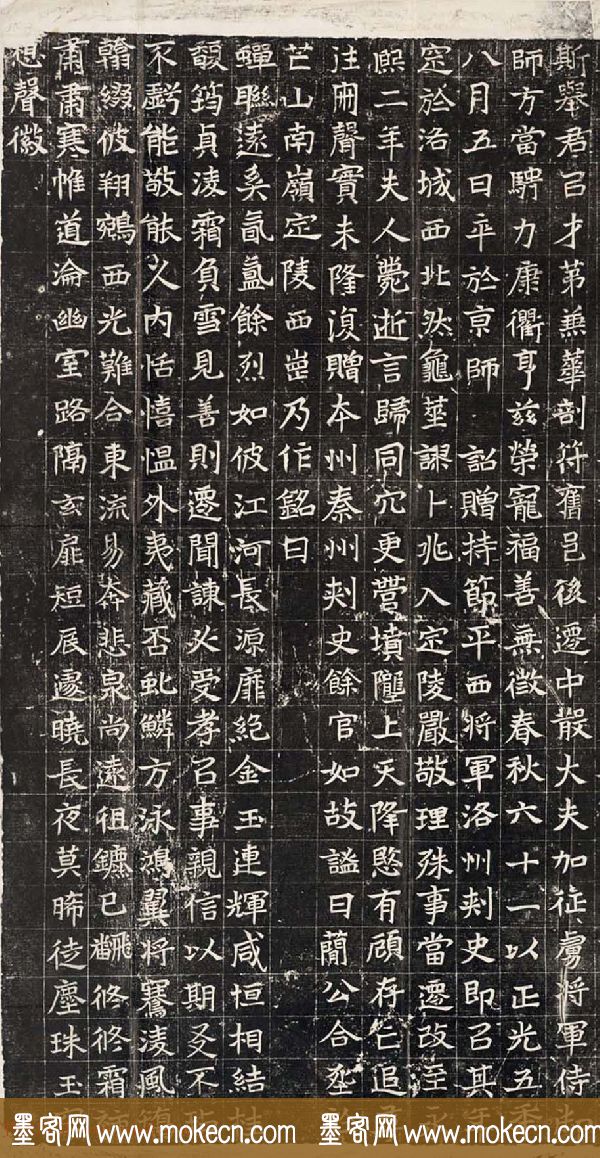 斯舉君㠯才第兼華剖符舊邑後遷中散大夫加征虜將軍侍
師方當騁力康衢亨兹榮寵福善無徵春秋六十一以正光五
八月五日卒於京師 詔贈持節平西將軍洛州刺史即㠯其年
窆於洛城西北然龜筮謀卜兆入定陵嚴敬理殊事當遷改至永
熙二年夫人薨逝言歸同穴更營墳壠上天降愍有顧存亡追
注冊聲實未隆復贈本州秦州刺史餘官如故謚曰蕳公合𦵏
芒山南嶺定陵西崗乃作銘曰
蟬聯遠系氤氳餘烈如彼江河長源靡絶金玉連輝咸恒相結
馥筠貞淩霜負雪見善則遷聞諫必受孝㠯事親信以期友不
不虧能敬能久內恬憘愠外夷藏否虬鱗方泳鴻翼將騫淩風
翰綴彼翔鵷西光難合東流易奔悲泉尚遠徂鑣已飜修修霜
肅肅寒帷道淪幽室路隔玄扉短辰遽曉長夜莫晞徒塵珠玉
想聲徽
墨客网 www.mokecn.com 墨客网 www.mokecn.com